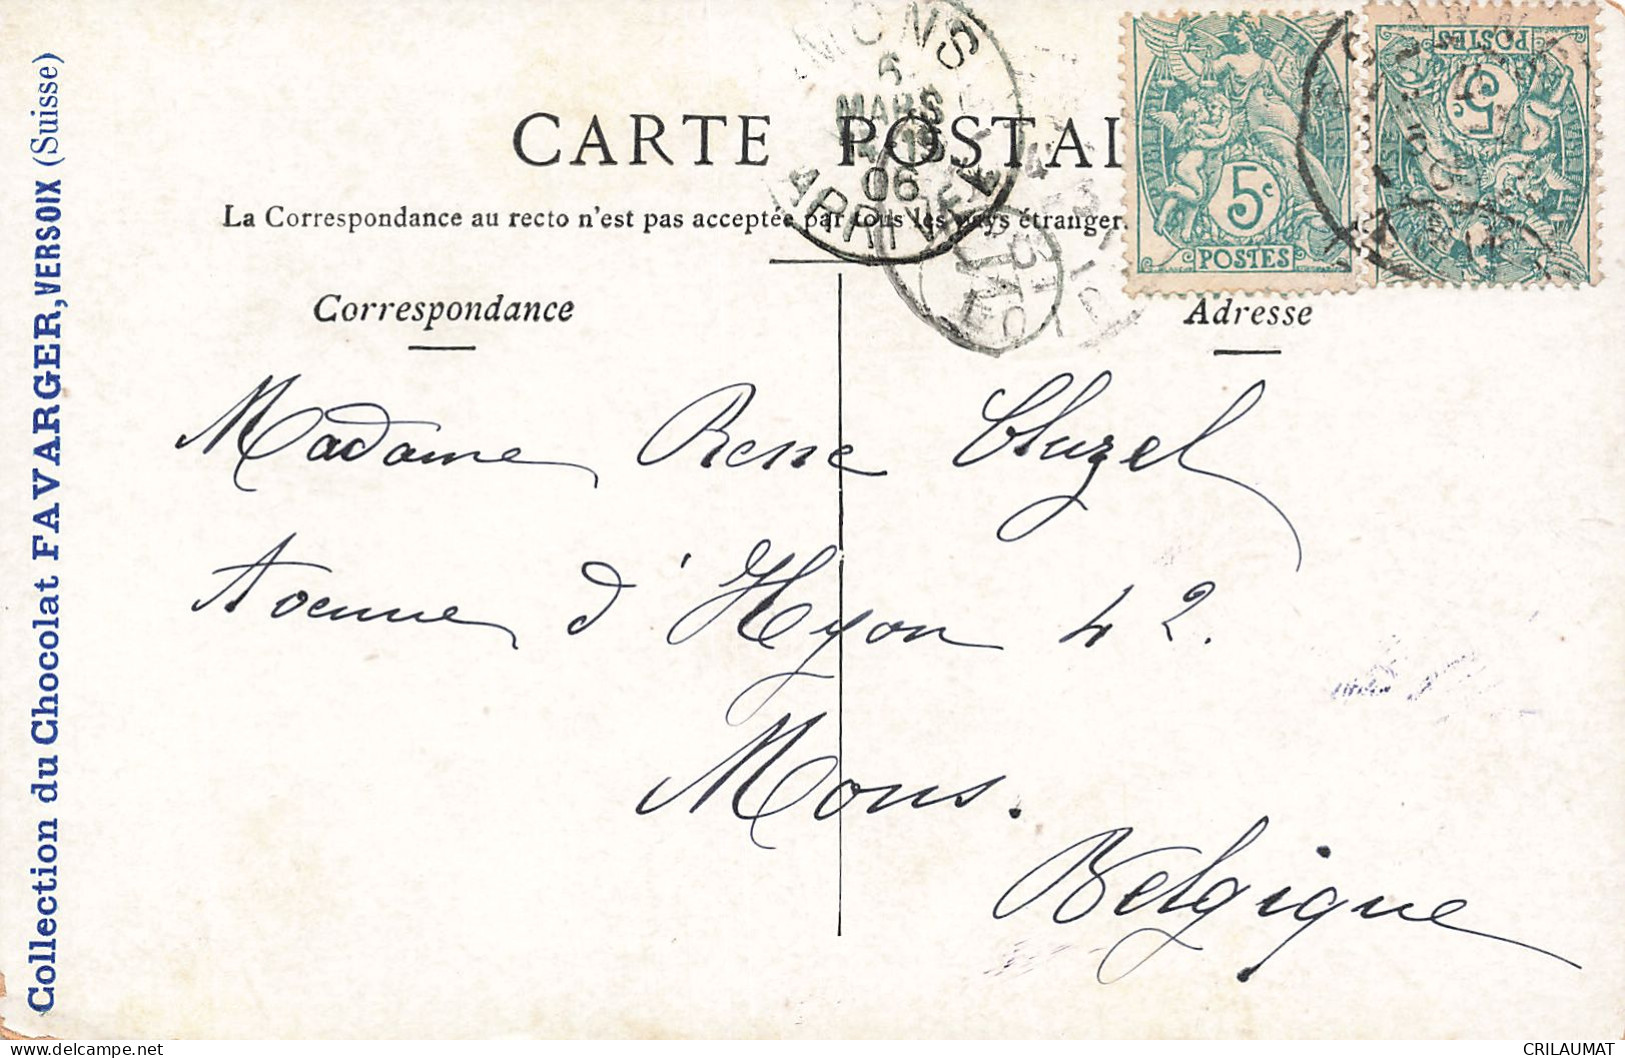 Collection du Chocolat FAVARGER, VERSOIX (Suisse)
CARTE POSTAL
La Correspondance au recto n'est pas acceptée par tous les pays étranger
Correspondance
Adresse
MONS
6
MARS
19
06
ARRIVEE
5c
POSTES
5c
POSTES
Madame Rene Cluzel
Avenue d'Hyon 42.
Mons.
Belgique
CRILAUMAT